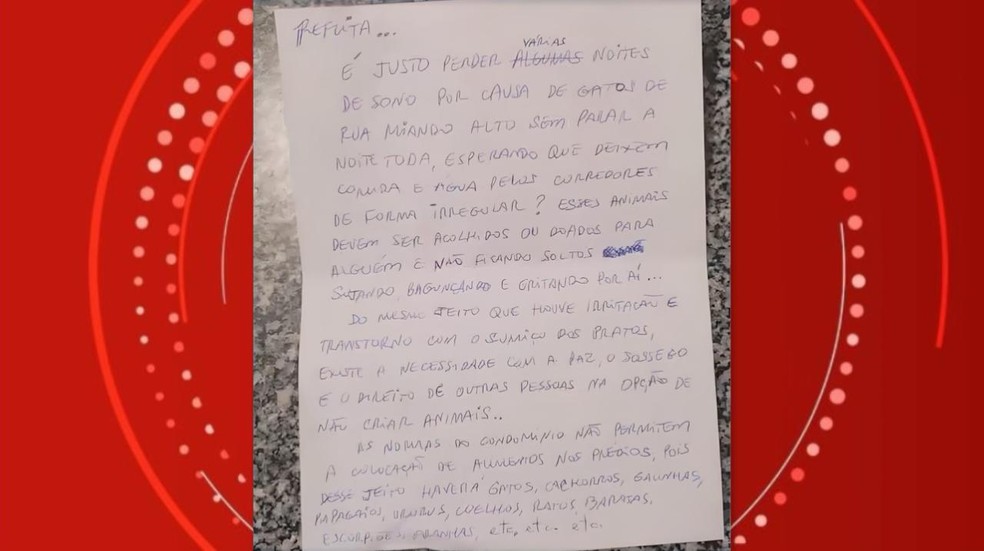 REFLITA...
É JUSTO PERDER VÁRIAS ALGUMAS NOITES
DE SONO POR CAUSA DE GATOS DE
RUA MIANDO ALTO SEM PARAR A
NOITE TODA, ESPERANDO QUE DEIXEM
COMIDA E ÁGUA PELOS CORREDORES
DE FORMA IRREGULAR? ESSES ANIMAIS
DEVEM SER ACOLHIDOS OU DOADOS PARA
ALGUÉM E NÃO FICANDO SOLTOS
SUJANDO, BAGUNÇANDO E GRITANDO POR AÍ...
DO MESMO JEITO QUE HOUVE IRRITAÇÃO E
TRANSTORNO COM O SUMIÇO DOS PRATOS,
EXISTE A NECESSIDADE COM A PAZ, O SOSSEGO
E O DIREITO DE OUTRAS PESSOAS NA OPÇÃO DE
NÃO CRIAR ANIMAIS..
AS NORMAS DO CONDOMÍNIO NÃO PERMITEM
A COLOCAÇÃO DE ALIMENTOS NOS PRÉDIOS, POIS
DESSE JEITO HAVERÁ GATOS, CACHORROS, GALINHAS,
PAPAGAIOS, URUBUS, COELHOS, RATOS, BARATAS.
ESCORPIÕES, ARANHAS, etc, etc. etc.